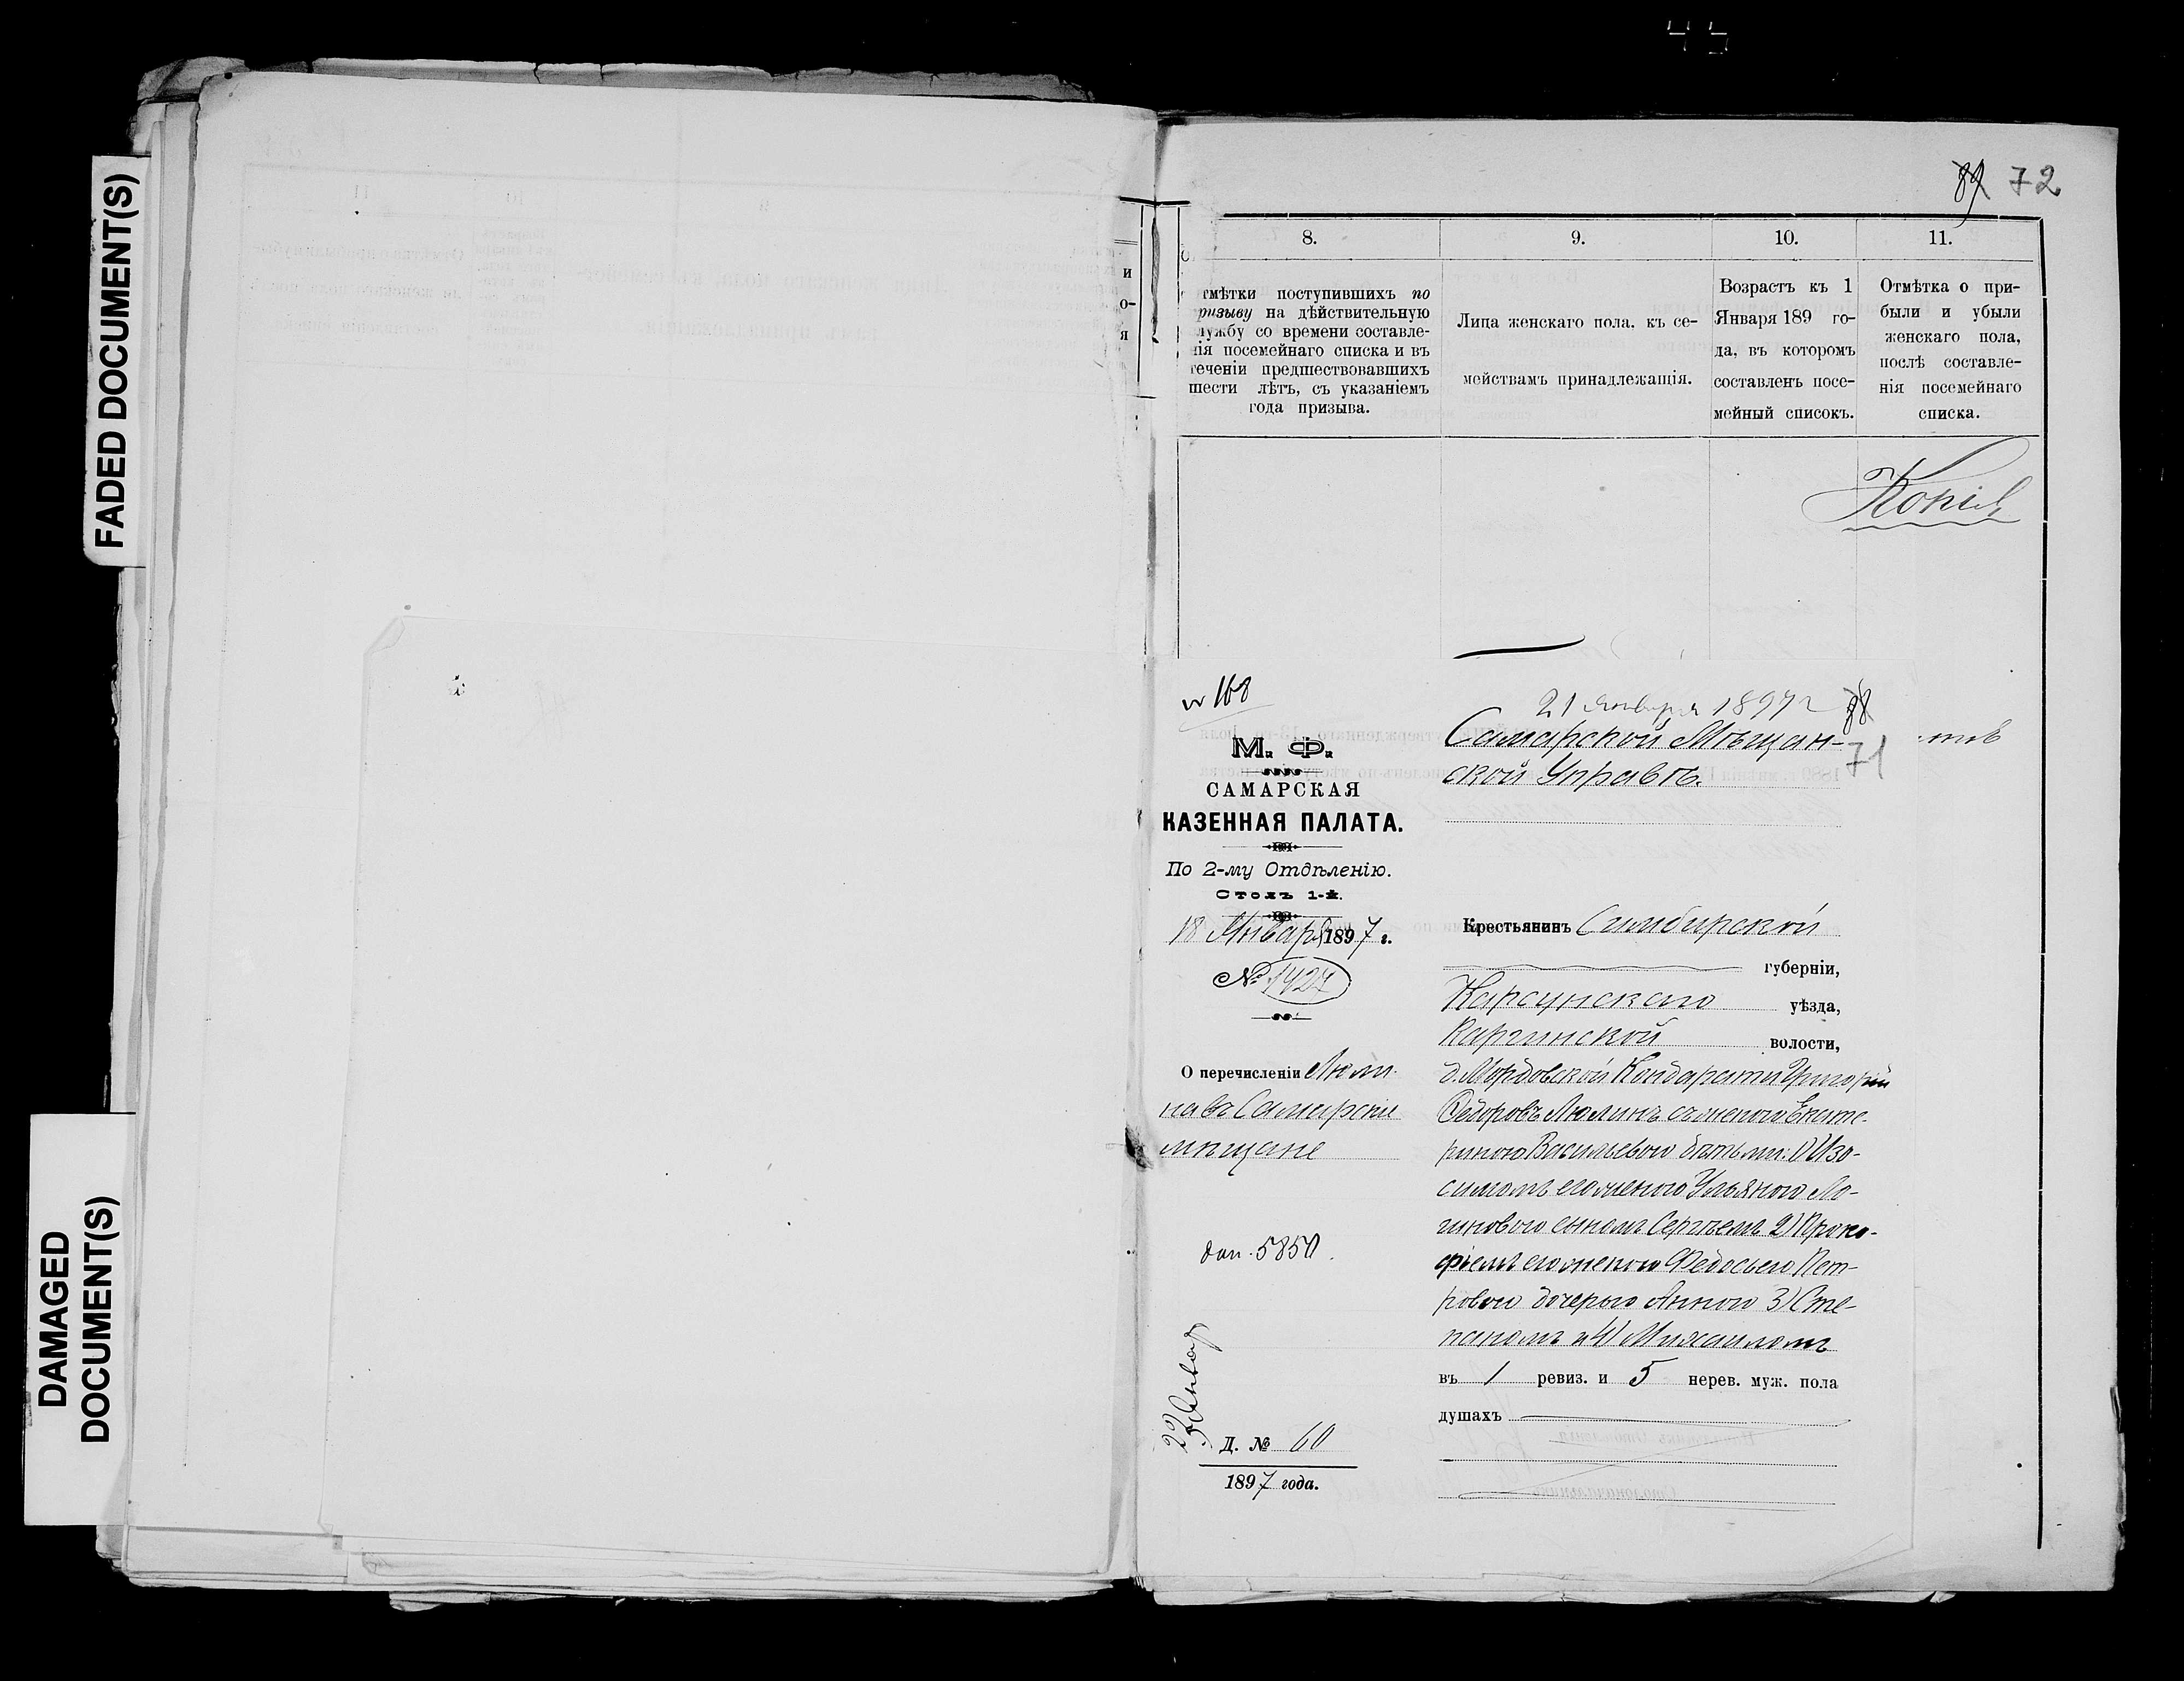 FADED DOCUMENT(S)
DAMAGED
DOCUMENT(S)
и
о-
я
72
8.
9.
10.
11.
тмѣтки поступившихъ по
ризыву на дѣйствительную
лужбу со времени составле-
нія посемейнаго списка и въ
теченіи предшествовавшихъ
шести лѣтъ, съ указаніемъ
года призыва.
Лица женскаго пола. къ се-
мействамъ принадлежащія.
Возрастъ къ 1
Января 189 го-
да, въ которомъ
составленъ посе-
мейный списокъ.
Отмѣтка о при-
были и убыли
женскаго пола,
послѣ составле-
нія посемейнаго
списка.
Копія
№ 168
М. Ф.
САМАРСКАЯ
КАЗЕННАЯ ПАЛАТА.
По 2-му Отдѣленію.
Столъ 1-й.
18 Января 1897 г.
№ 1427
О перечисленіи Люли-
на въ Самарскіе
мѣщане
доп. 5850.
22 Январ
Д. № 60
1897 года.
21 января 1897 г
71
Самарской Мѣщан-
ской Управѣ.
Крестьянинъ Симбирской
губерніи,
Карсунскаго уѣзда,
Каргинской волости,
д. Мордовской Кандарати Григорій
Ѳедоровъ Люлинъ съ женою Екате-
риною Васильевою дѣтьми: 1) Изо-
симомъ его женою Ульяною Ло-
гиновою сыномъ Сергѣемъ 2) Проко-
фіемъ его женою Ѳедосьею Пет-
ровою дочерью Анною 3) Сте-
паномъ и 4) Михаиломъ
въ 1 ревиз. и 5 нерев. муж. пола
душахъ